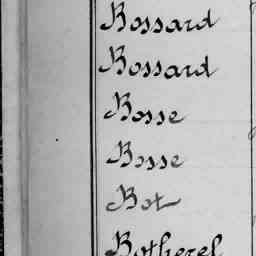 Bossard
Bossard
Bosse
Bosse
Bot
Botherel